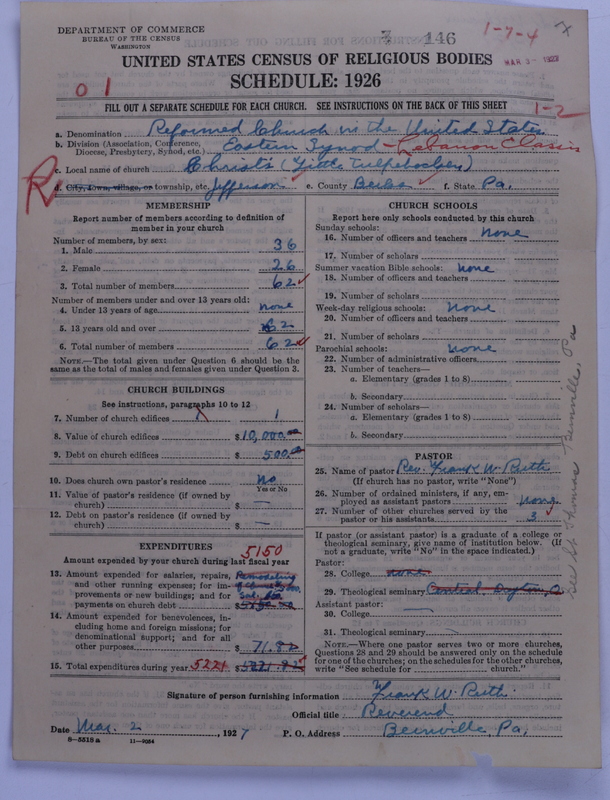 DEPARTMENT OF COMMERCE
BUREAU OF THE CENSUS
WASHINGTON
3 146
1-7-4
MAR 3 - 1927
UNITED STATES CENSUS OF RELIGIOUS BODIES
SCHEDULE: 1926
0 1
FILL OUT A SEPARATE SCHEDULE FOR EACH CHURCH. SEE INSTRUCTIONS ON THE BACK OF THIS SHEET
1-2
a. Denomination Reformed Church in the United States
b. Division (Association, Conference, Diocese, Presbytery, Synod, etc.) Eastern Synod - Lebanon Classis
c. Local name of church Christ's (Little Tulpehocken)
R
d. City, town, village, or township, etc. Jefferson e. County Berks f. State Pa.
MEMBERSHIP
Report number of members according to definition of
member in your church
Number of members, by sex:
1. Male 36
2. Female 26
3. Total number of members 62
Number of members under and over 13 years old:
4. Under 13 years of age none
5. 13 years old and over 62
6. Total number of members 62
NOTE.—The total given under Question 6 should be the
same as the total of males and females given under Question 3.
CHURCH BUILDINGS
See instructions, paragraphs 10 to 12
7. Number of church edifices 1
8. Value of church edifices $10,000.00
9. Debt on church edifices $500.00
10. Does church own pastor's residence No
Yes or No
11. Value of pastor's residence (if owned by
church) $ —
12. Debt on pastor's residence (if owned by
church) $ —
EXPENDITURES
5150
Amount expended by your church during last fiscal year
13. Amount expended for salaries, repairs, Remodeling
and other running expenses; for im-
provements or new buildings; and for
payments on church debt
14. Amount expended for benevolences, in-
cluding home and foreign missions; for
denominational support; and for all
other purposes $71.82
15. Total expenditures during year 5221 $5221.82
CHURCH SCHOOLS
Report here only schools conducted by this church
Sunday schools:
16. Number of officers and teachers none
17. Number of scholars
Summer vacation Bible schools: none
18. Number of officers and teachers
19. Number of scholars
Week-day religious schools: none
20. Number of officers and teachers
21. Number of scholars
Parochial schools: none
22. Number of administrative officers
23. Number of teachers—
a. Elementary (grades 1 to 8)
b. Secondary
24. Number of scholars—
a. Elementary (grades 1 to 8)
b. Secondary
PASTOR
25. Name of pastor Rev. Frank W. Ruth
(If church has no pastor, write "None")
26. Number of ordained ministers, if any, em-
ployed as assistant pastors none
27. Number of other churches served by the
pastor or his assistants 3
If pastor (or assistant pastor) is a graduate of a college or
theological seminary, give name of institution below. (If
not a graduate, write "No" in the space indicated.)
Pastor:
28. College none
29. Theological seminary Central, Dayton, O
Assistant pastor:
30. College —
31. Theological seminary
NOTE.—Where one pastor serves two or more churches,
Questions 28 and 29 should be answered only on the schedule
for one of the churches; on the schedules for the other churches,
write "See schedule for church."
See St Thomas Bernville Pa
Signature of person furnishing information Frank W. Ruth.
Official title Reverend
Date Mar. 2, 1927 P. O. Address Bernville Pa.
8-5518 a 11-9054